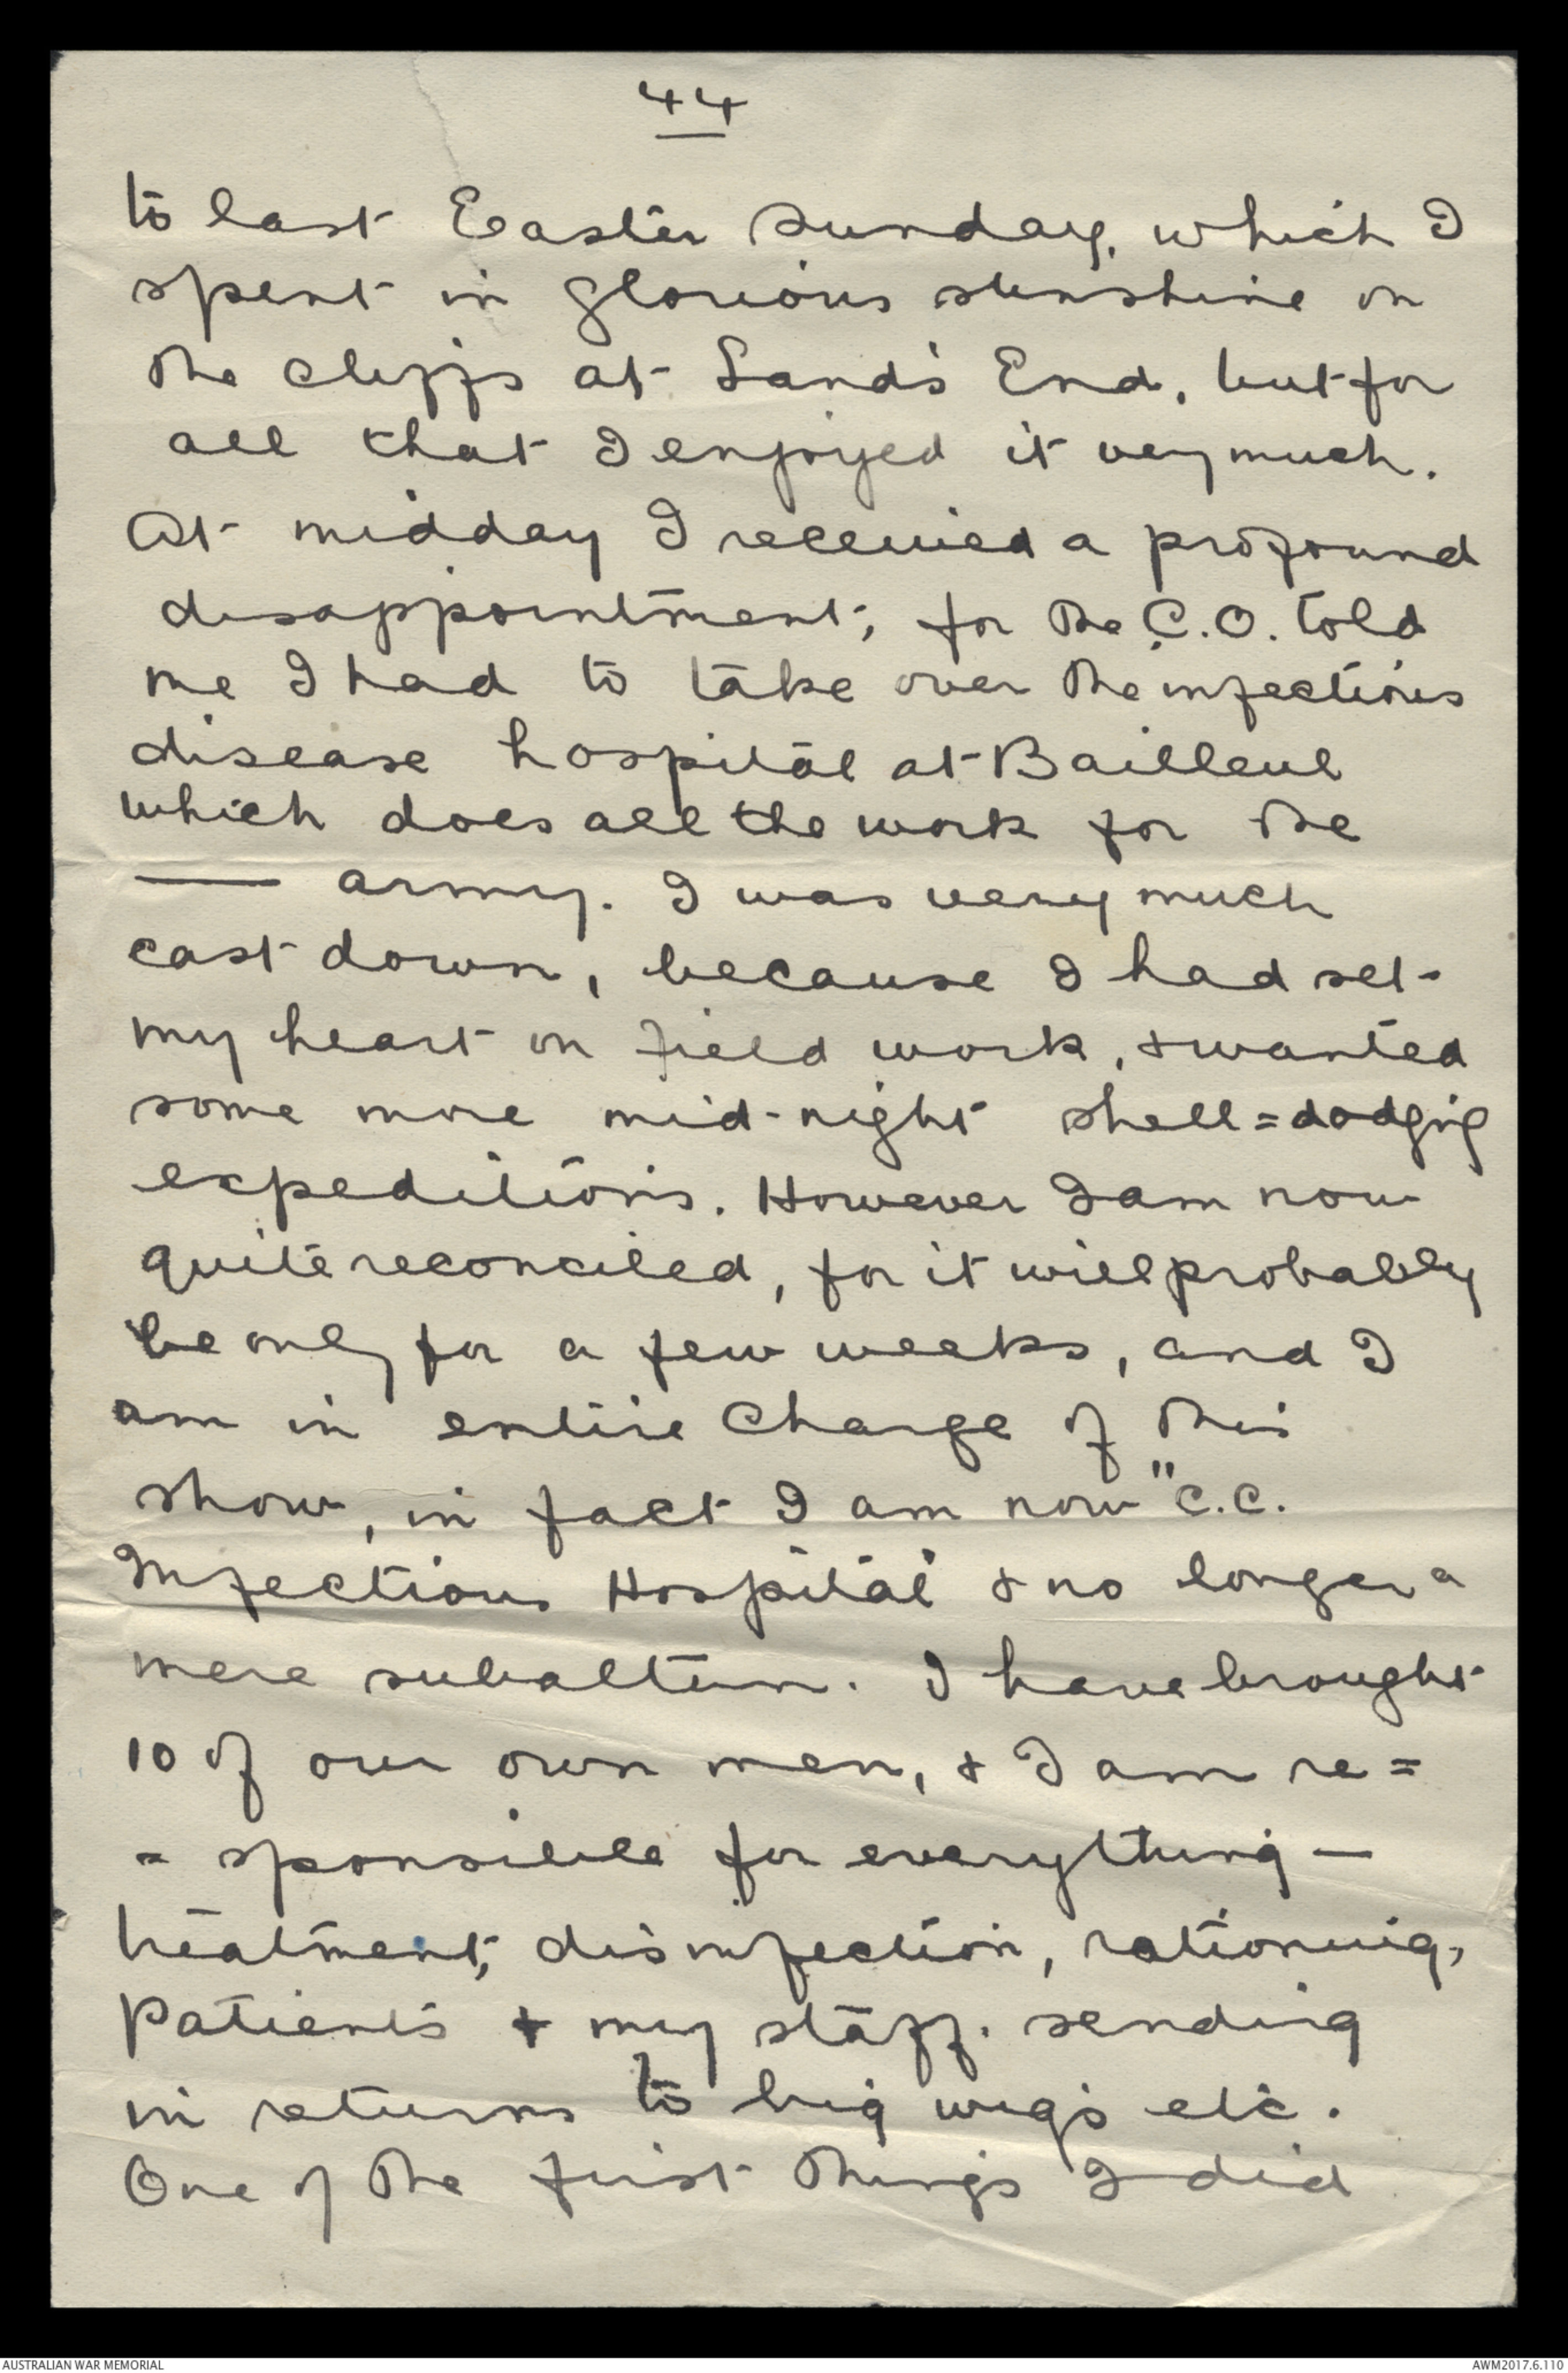 44
to last Easter Sunday, which I
spent in glorious sunshine on
the cliffs at Land's End, but for
all that I enjoyed it very much.
At midday I received a profound
disappointment, for the C.O. told
me I had to take over the infectious
disease hospital at Bailleul
which does all the work for the
—— army. I was very much
cast down, because I had set
my heart on field work, & wanted
some more mid-night shell=dodging
expeditions. However I am now
quite reconciled, for it will probably
be only for a few weeks, and I
am in entire charge of this
show, in fact I am now "C.C.
Infectious Hospital" & no longer a
mere subaltern. I have brought
10 of our own men, & I am re=
= sponsible for everything —
treatment, disinfection, rationing,
patients & my staff. sending
in returns to big wigs etc.
One of the first things I did
AUSTRALIAN WAR MEMORIAL
AWM2017.6.110